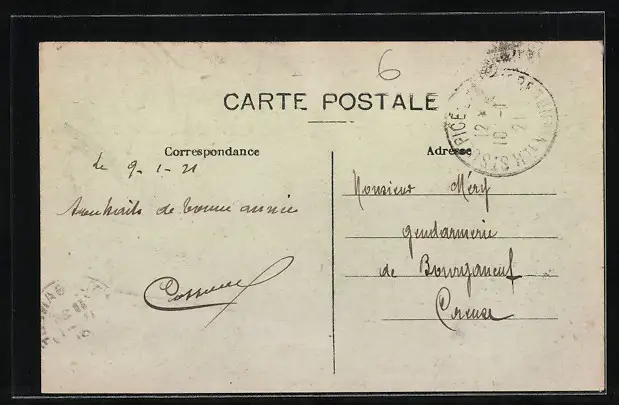 6
CARTE POSTALE
Correspondance
Adresse
le 9-1-21
Souhaits de bonne année
Monsieur Méry
gendarmerie
de Bourganeuf
Creuse
12 *
10 -1
21